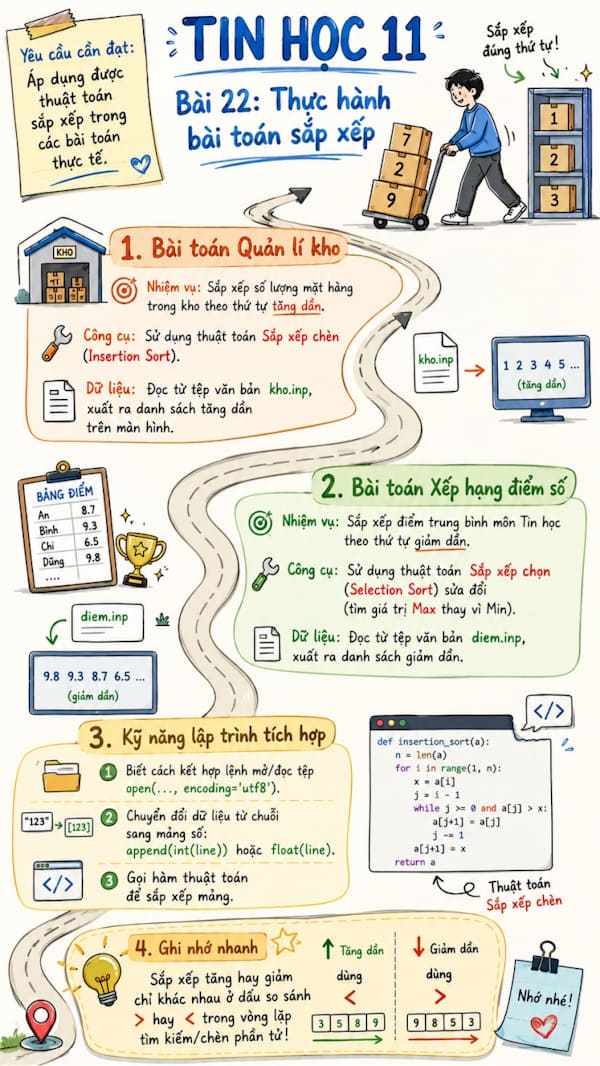 Yêu cầu cần đạt:
Áp dụng được
thuật toán
sắp xếp trong
các bài toán
thực tế.
TIN HỌC 11
Bài 22: Thực hành
bài toán sắp xếp
Sắp xếp
đúng thứ tự!
7
2
9
1
2
3
KHO
1. Bài toán Quản lí kho
Nhiệm vụ: Sắp xếp số lượng mặt hàng
trong kho theo thứ tự tăng dần.
Công cụ: Sử dụng thuật toán Sắp xếp chèn
(Insertion Sort).
Dữ liệu: Đọc từ tệp văn bản kho.inp,
xuất ra danh sách tăng dần
trên màn hình.
kho.inp
1 2 3 4 5 ...
(tăng dần)
BẢNG ĐIỂM
An 8.7
Bình 9.3
Chi 6.5
Dũng 9.8
....
2. Bài toán Xếp hạng điểm số
Nhiệm vụ: Sắp xếp điểm trung bình môn Tin học
theo thứ tự giảm dần.
Công cụ: Sử dụng thuật toán Sắp xếp chọn
(Selection Sort) sửa đổi
(tìm giá trị Max thay vì Min).
Dữ liệu: Đọc từ tệp văn bản diem.inp,
xuất ra danh sách giảm dần.
diem.inp
9.8 9.3 8.7 6.5 ...
(giảm dần)
3. Kỹ năng lập trình tích hợp
1 Biết cách kết hợp lệnh mở/đọc tệp
open(..., encoding='utf8').
"123" → [123]
2 Chuyển đổi dữ liệu từ chuỗi
sang mảng số:
append(int(line)) hoặc float(line).
</>
3 Gọi hàm thuật toán
để sắp xếp mảng.
</>
def insertion_sort(a):
n = len(a)
for i in range(1, n):
x = a[i]
j = i - 1
while j >= 0 and a[j] > x:
a[j+1] = a[j]
j -= 1
a[j+1] = x
return a
Thuật toán
Sắp xếp chèn
4. Ghi nhớ nhanh
Sắp xếp tăng hay giảm
chỉ khác nhau ở dấu so sánh
> hay < trong vòng lặp
tìm kiếm/chèn phần tử!
↑ Tăng dần
dùng
<
3 5 8 9
↓ Giảm dần
dùng
>
9 8 5 3
Nhớ nhé!